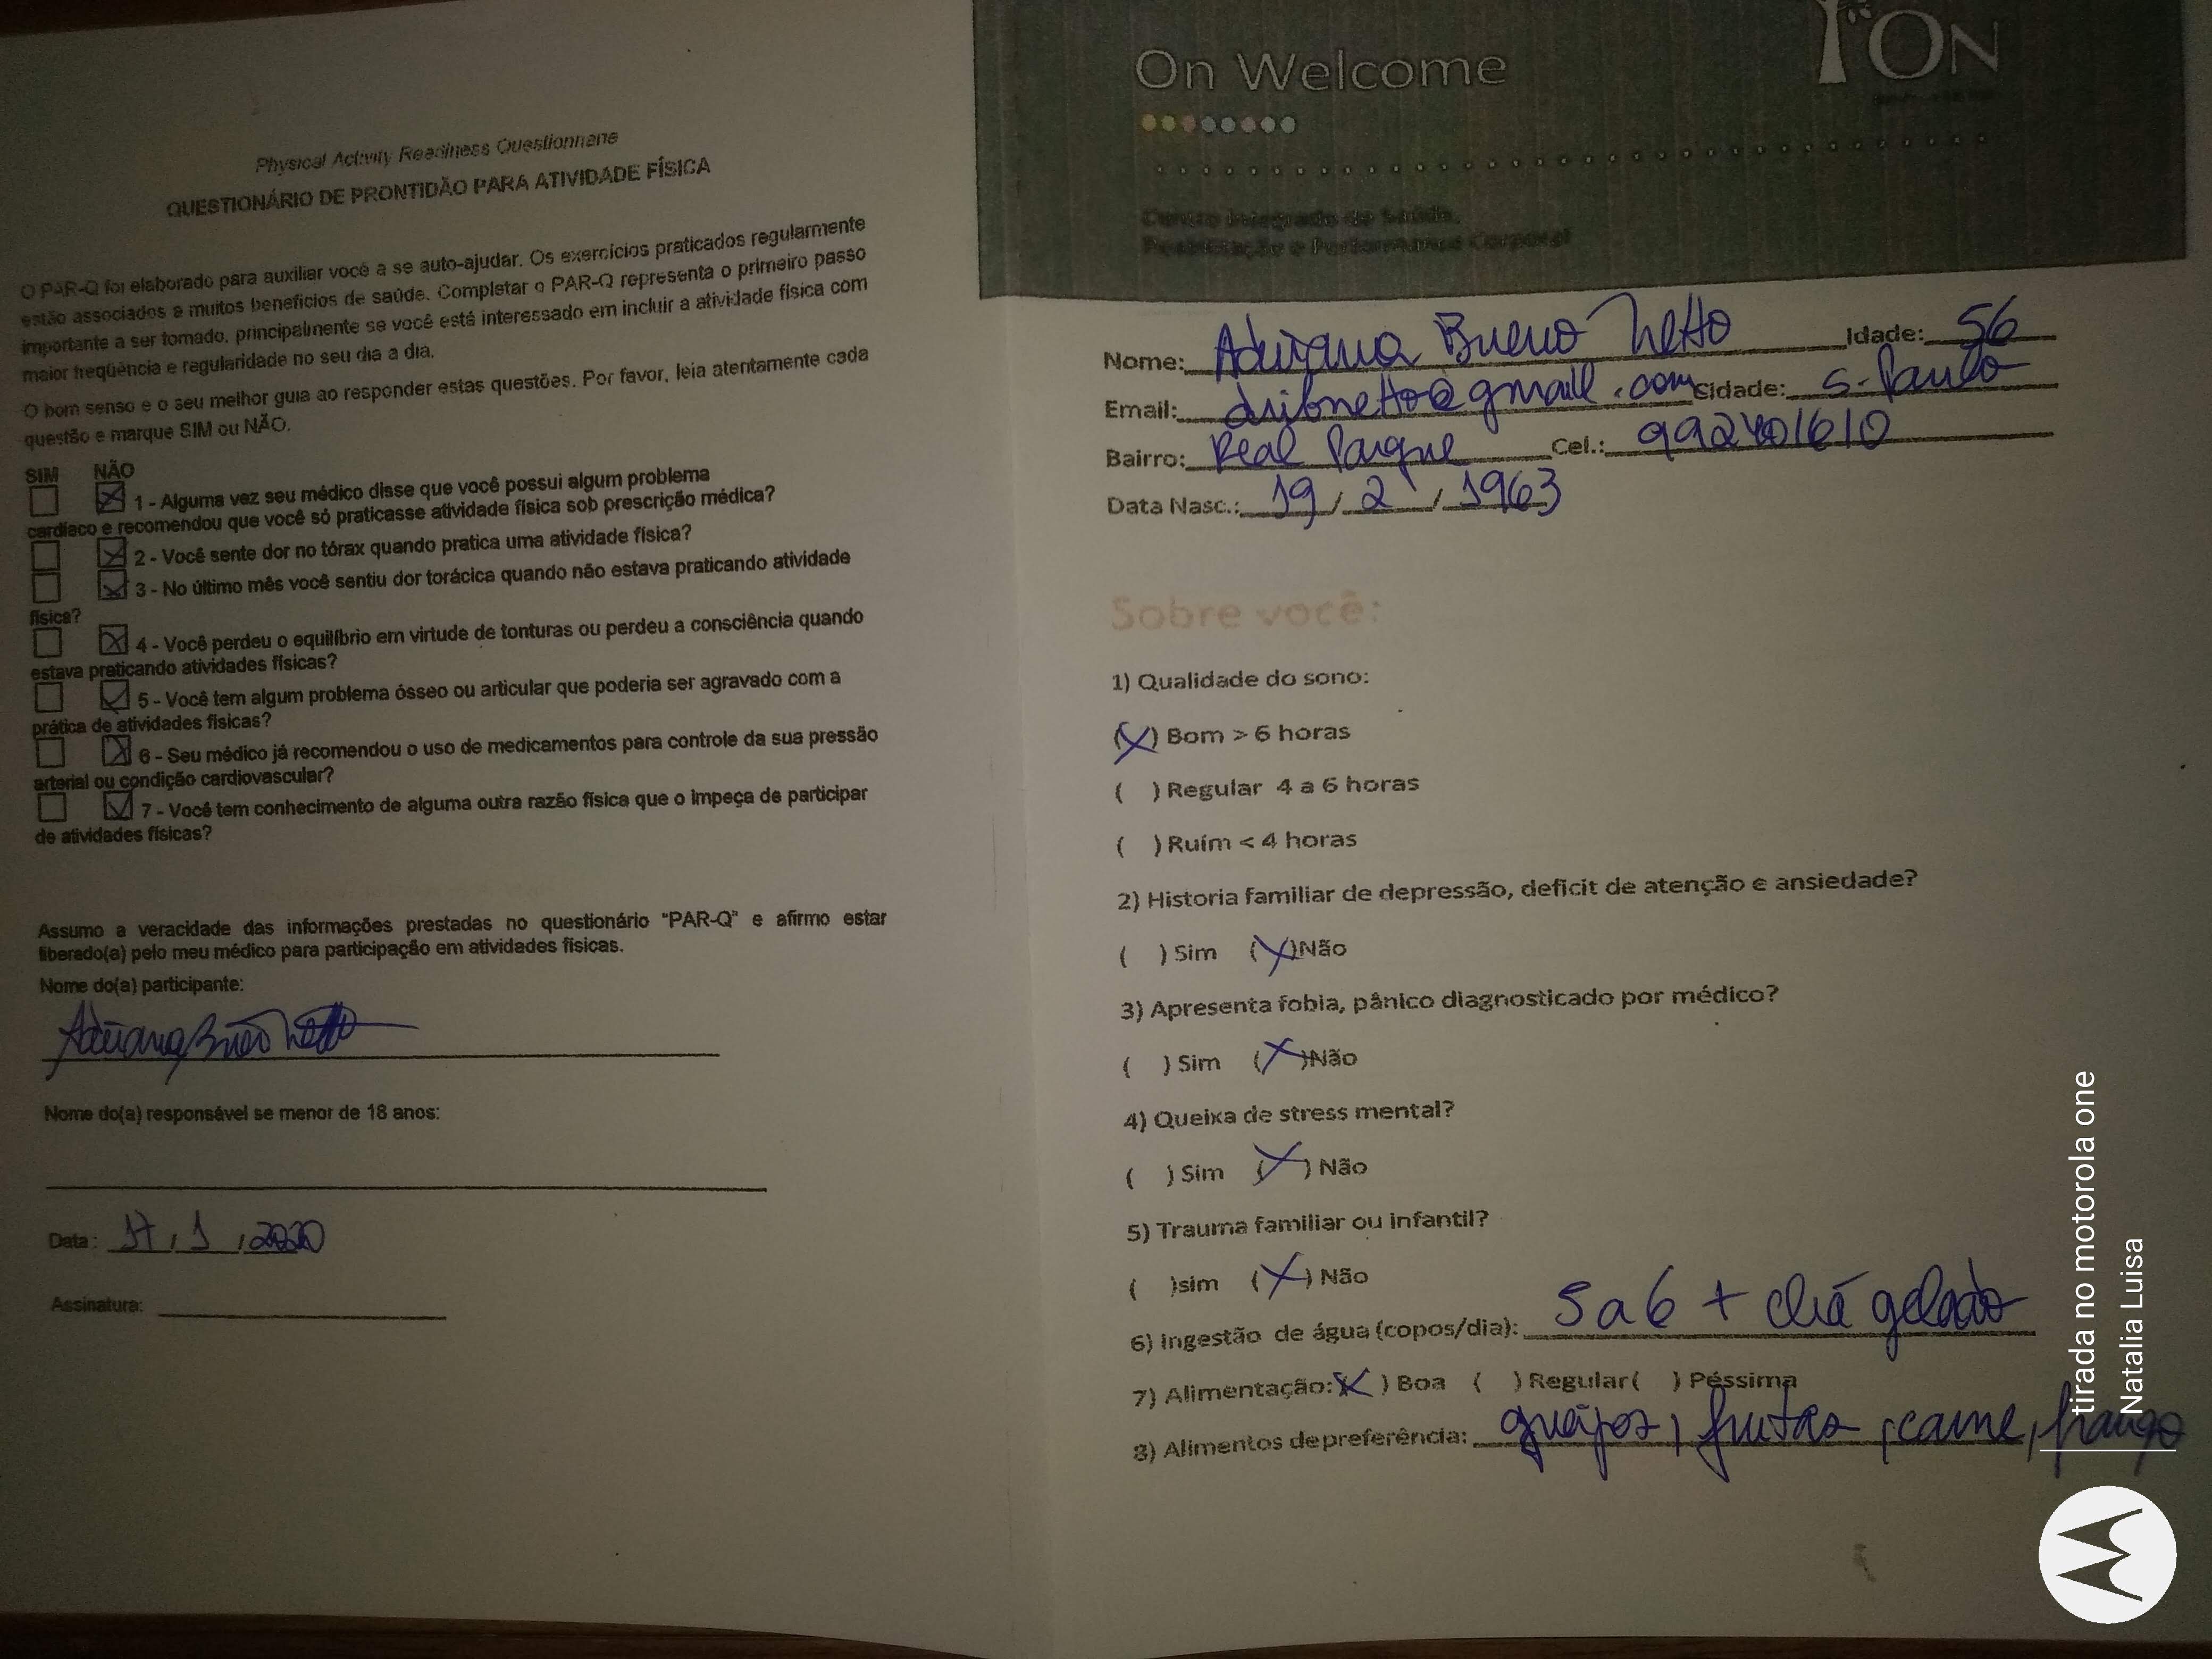 Physical Activity Readiness Questionnaire
QUESTIONÁRIO DE PRONTIDÃO PARA ATIVIDADE FÍSICA
O PAR-Q foi elaborado para auxiliar você a se auto-ajudar. Os exercícios praticados regularmente
estão associados a muitos benefícios de saúde. Completar o PAR-Q representa o primeiro passo
importante a ser tomado, principalmente se você está interessado em incluir a atividade física com
maior freqüência e regularidade no seu dia a dia.
O bom senso e o seu melhor guia ao responder estas questões. Por favor, leia atentamente cada
questão e marque SIM ou NÃO.
SIM NÃO
1 - Alguma vez seu médico disse que você possui algum problema
cardíaco e recomendou que você só praticasse atividade física sob prescrição médica?
2 - Você sente dor no tórax quando pratica uma atividade física?
3 - No último mês você sentiu dor torácica quando não estava praticando atividade
física?
4 - Você perdeu o equilíbrio em virtude de tonturas ou perdeu a consciência quando
estava praticando atividades físicas?
5 - Você tem algum problema ósseo ou articular que poderia ser agravado com a
prática de atividades físicas?
6 - Seu médico já recomendou o uso de medicamentos para controle da sua pressão
arterial ou condição cardiovascular?
7 - Você tem conhecimento de alguma outra razão física que o impeça de participar
de atividades físicas?
Assumo a veracidade das informações prestadas no questionário "PAR-Q" e afirmo estar
liberado(a) pelo meu médico para participação em atividades físicas.
Nome do(a) participante:
Nome do(a) responsável se menor de 18 anos:
Data: 17, 1, 2020
Assinatura:
On Welcome
ON
Nome: Adriana Bueno Netto Idade: 56
Email: drijonetto@gmail.com Cidade: S. Paulo
Bairro: Real Parque Cel.:
Data Nasc.: 19/2/1963
Sobre você:
1) Qualidade do sono:
(X) Bom > 6 horas
( ) Regular 4 a 6 horas
( ) Ruim < 4 horas
2) Historia familiar de depressão, deficit de atenção e ansiedade?
( ) Sim (X) Não
3) Apresenta fobia, pânico diagnosticado por médico?
( ) Sim (X) Não
4) Queixa de stress mental?
( ) Sim (X) Não
5) Trauma familiar ou infantil?
( ) sim (X) Não
6) Ingestão de água (copos/dia): 5 a 6 + chá gelado
7) Alimentação: X ) Boa ( ) Regular ( ) Péssima
8) Alimentos de preferência: queijos, frutas, carne, frango
tirada no motorola one
Natalia Luisa